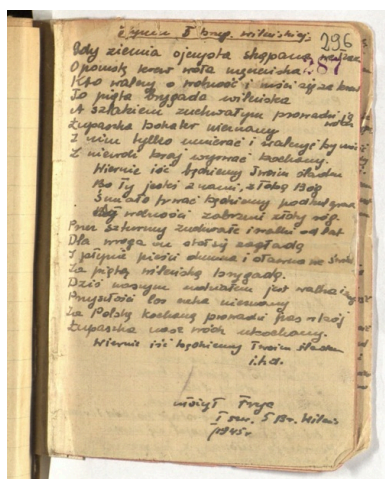 Hymn 5 bryg. wileńskiej.
296
287
Gdy ziemia ojczysta skąpana
O pomstę krew woła męczeńska
Kto walczy o wolność i mści się za krew
To piąta brygada wileńska
A szlakiem zuchwałym prowadzi
Łupaszka bohater nieznany
Z nim tylko umierać i walczyć by
Z niewoli kraj wyrwać kochany.
Wiernie iść będziemy Twoim śladem
Bo Ty jesteś z nami, z Tobą Bóg
Śmiało trwać będziemy pod
wolności zabrzmi złoty róg.
Przez szturmy zuchwałe i walki od lat
Dla wroga on stał się zagładą
I płynie pieśń dumna i sławna
Za piątą wileńską brygadą.
Dziś naszym udziałem jest walka i
Przyszłość los czeka nieznany
Za Polskę kochaną prowadź nas w bój
Łupaszka nasz wódz ukochany.
Wiernie iść będziemy Twoim śladem
i.t.d.
ułożył Fryc
I szw. 5 Br. Wileń.
1945r